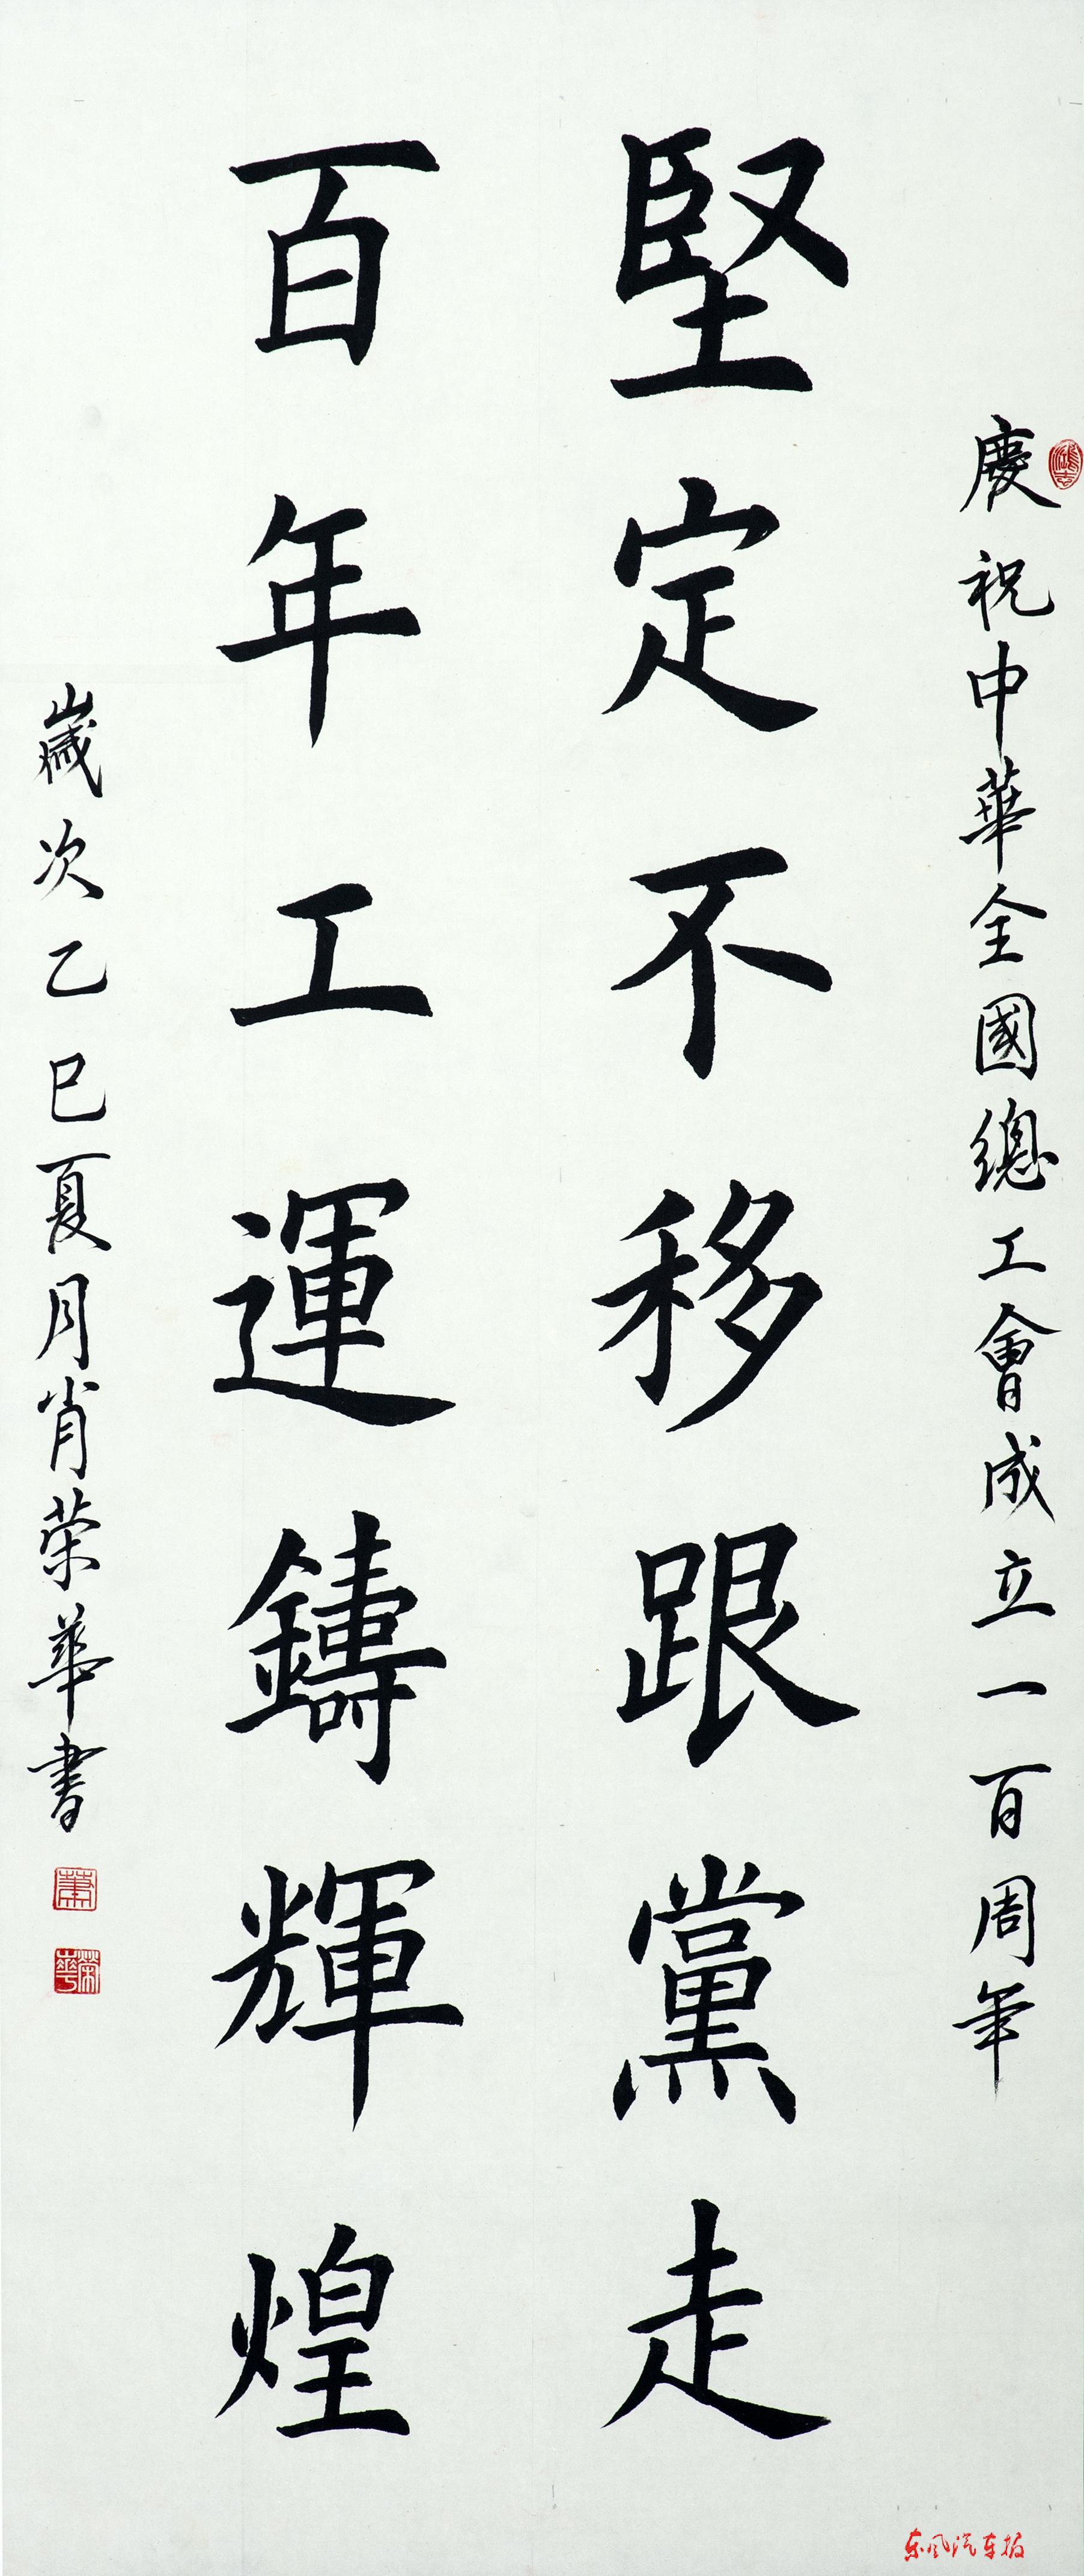 慶祝中華全國總工會成立一百周年
堅定不移跟黨走
百年工運鑄輝煌
歲次乙巳夏月肖荣華書
蕭
荣華
东风汽车报